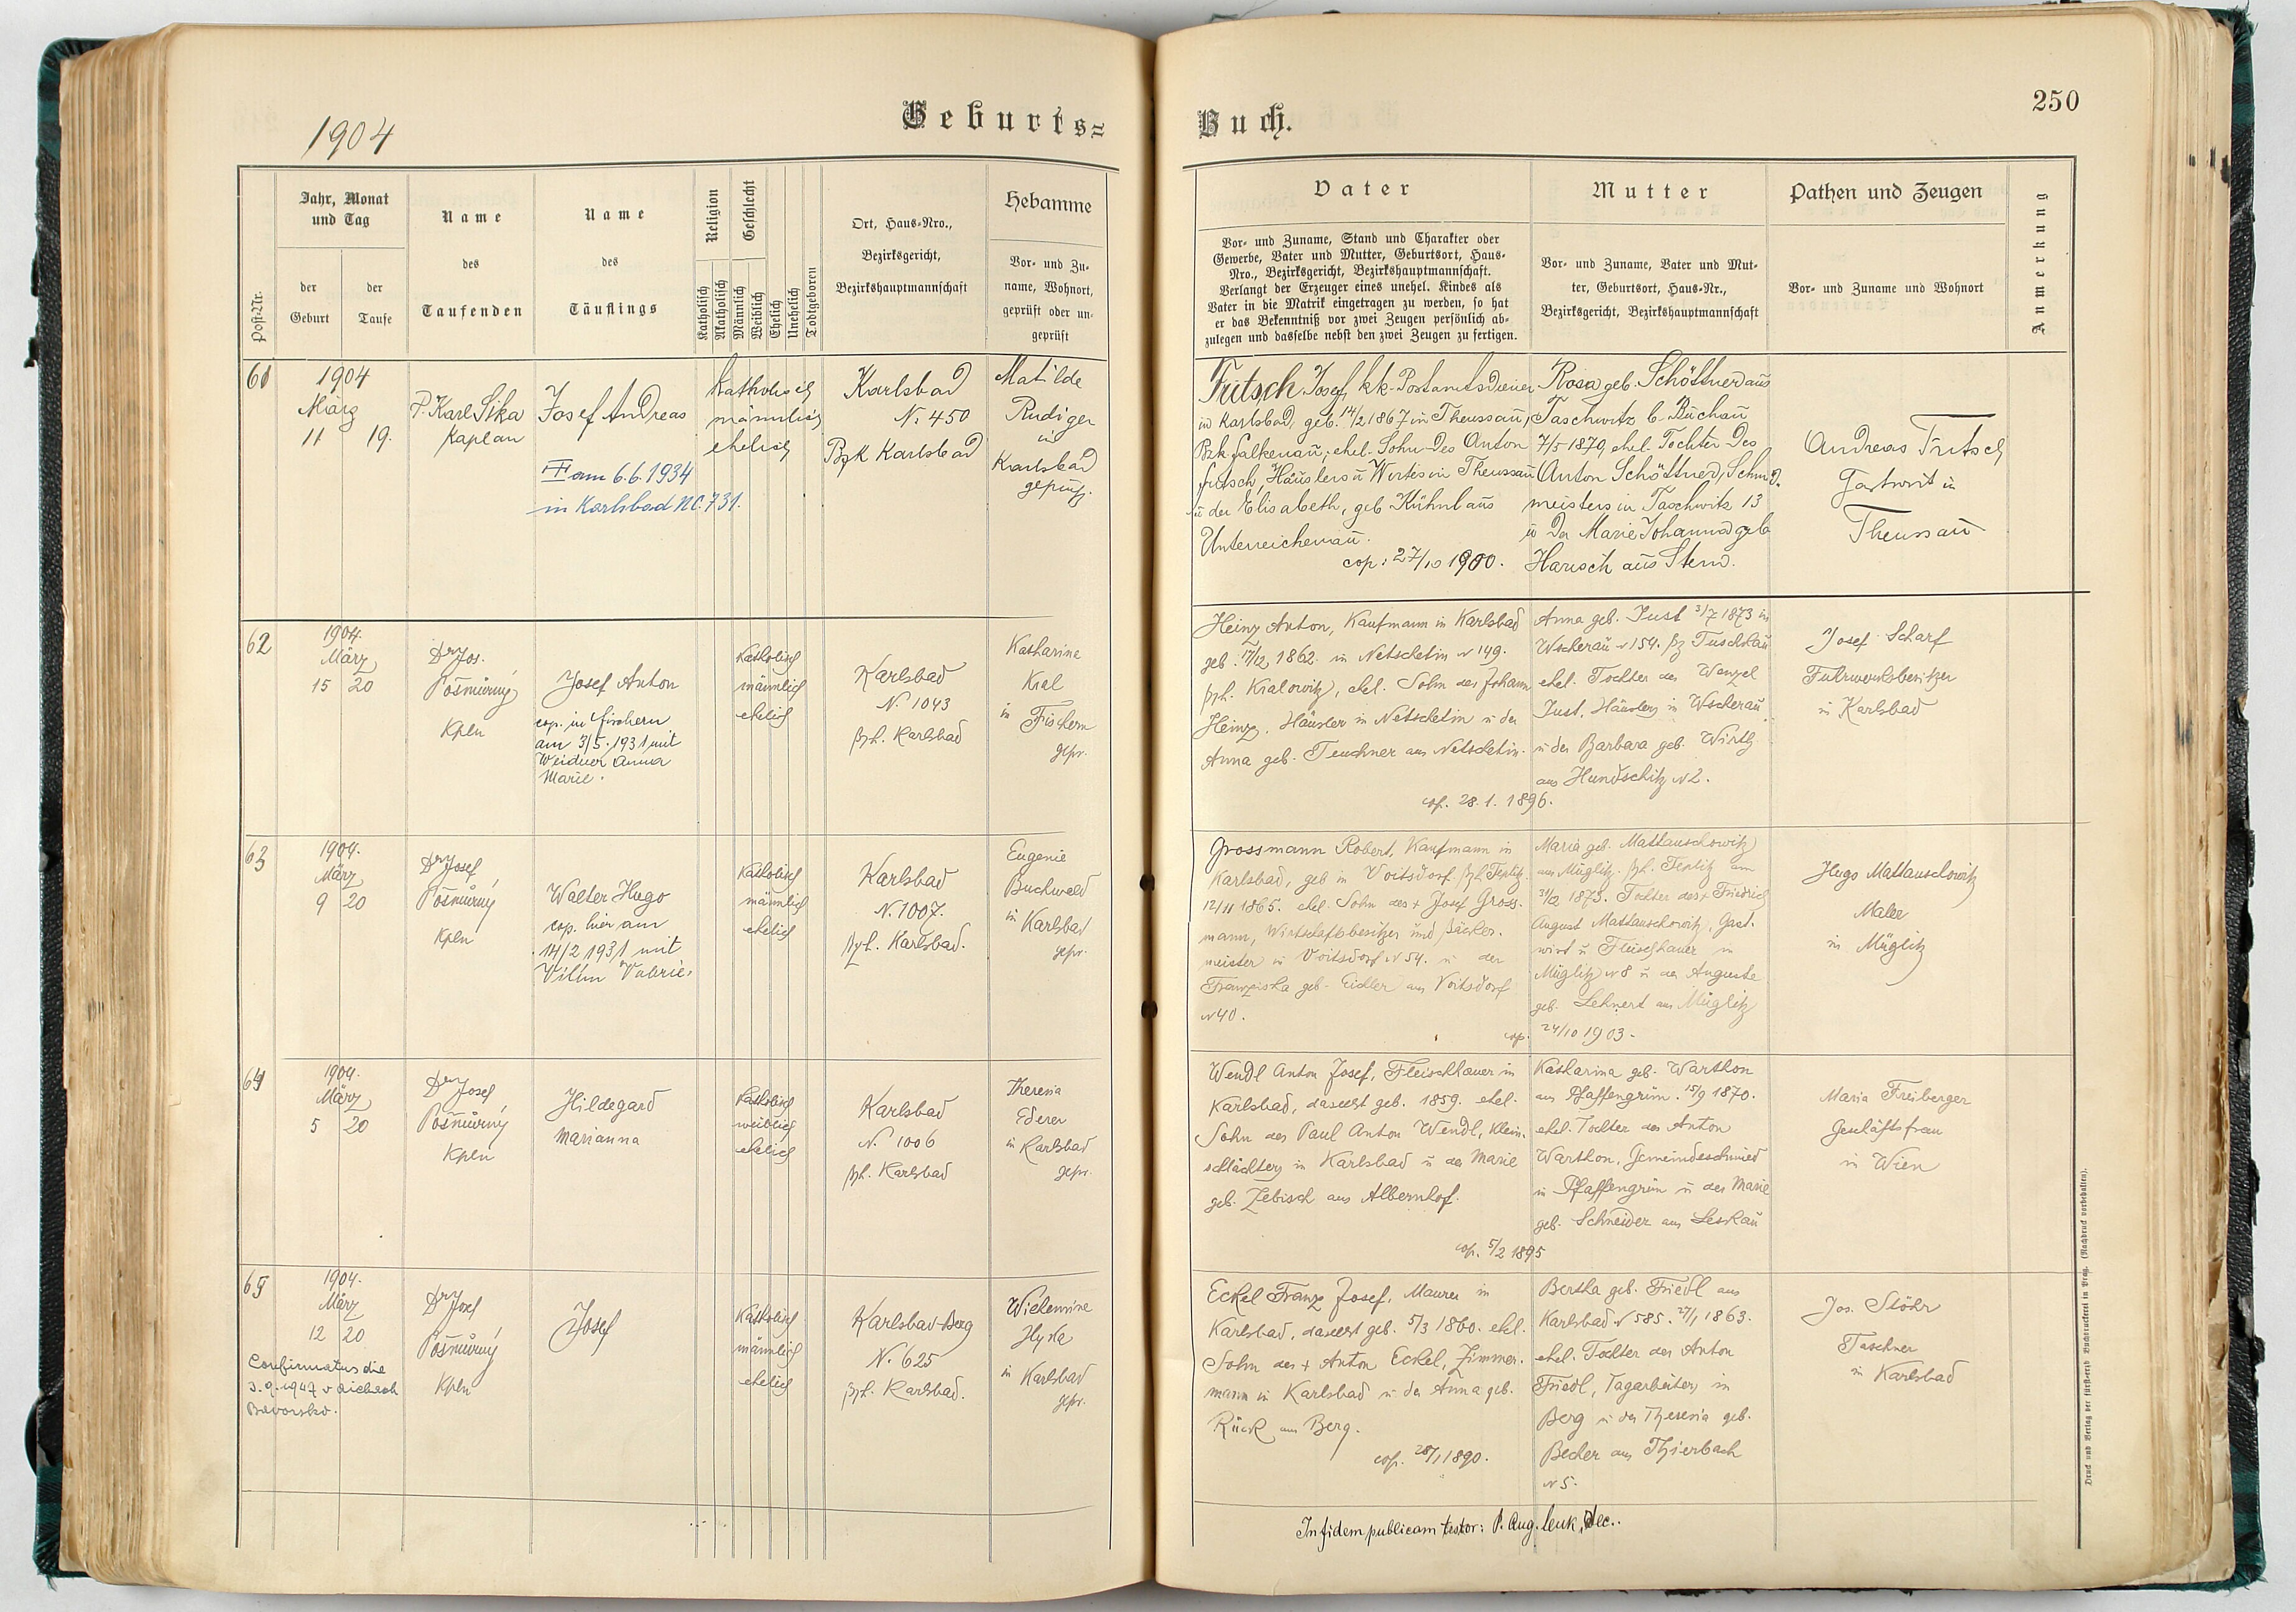 1904
Geburts=
Buch.
250
Post-Nr.
Jahr, Monat
und Tag
der
Geburt
der
Taufe
Name
des
Taufenden
Name
des
Täuflings
Religion
Katholisch
Akatholisch
Geschlecht
Männlich
Weiblich
Ehelich
Unehelich
Todtgeboren
Ort, Haus=Nro.,
Bezirksgericht,
Bezirkshauptmannschaft
Hebamme
Vor= und Zu=
name, Wohnort,
geprüft oder un=
geprüft
Vater
Vor= und Zuname, Stand und Charakter oder
Gewerbe, Vater und Mutter, Geburtsort, Haus=
Nro., Bezirksgericht, Bezirkshauptmannschaft.
Verlangt der Erzeuger eines unehel. Kindes als
Vater in die Matrik eingetragen zu werden, so hat
er das Bekenntniß vor zwei Zeugen persönlich ab=
zulegen und dasselbe nebst den zwei Zeugen zu fertigen.
Mutter
Vor= und Zuname, Vater und Mut=
ter, Geburtsort, Haus=Nr.,
Bezirksgericht, Bezirkshauptmannschaft
Pathen und Zeugen
Vor= und Zuname und Wohnort
Anmerkung
61
1904
März
11 19.
P. Karl Sika
Kaplan
Josef Andreas
am 6.6.1934
in Karlsbad NC. 731.
katholisch
männlich
ehelich
Karlsbad
N. 450
Bzk Karlsbad
Matilde
Rudiger
in
Karlsbad
geprüf.
Fritsch Josef, kk. Postamtsdiener
in Karlsbad, geb. 14/2 1867 in Theussau,
Bzk. Falkenau, ehel. Sohn des Anton
Fritsch, Häuslers u Wirtes in Theussau
u der Elisabeth, geb Kühnl aus
Unterreichenau.
cop: 27/10 1900.
Rosa geb. Schöttner aus
Taschwitz b. Buchau
7/5 1879, ehel. Tochter des
Anton Schöttner, Schmied=
meisters in Taschwitz 13
u der Marie Johanna geb
Harisch aus Stern.
Andreas Fritsch
Gastwirt in
Theussau
62
1904.
März
15 20
Dr Jos.
Pošmůrný
Kpln
Josef Anton
cop. in Fischern
am 3/5. 1931 mit
Weidner Anna
Marie.
Katholisch
männlich
ehelich
Karlsbad
N. 1043
Bzh. Karlsbad
Katharine
Kral
in Fischern
gepr.
Heinz Anton, Kaufmann in Karlsbad
geb. 17/12 1862. in Netschetin N 149.
Bzh. Kralowitz, ehel. Sohn des Johann
Heinz, Häusler in Netschetin u der
Anna geb. Teuchner aus Netschetin.
cop. 28. 1. 1896.
Anna geb. Just 3/7 1873 in
Wscherau N 154. Bz Tuschkau
ehel. Tochter des Wenzel
Just, Häusler in Wscherau
u der Barbara geb. Wirth
aus Hundschitz N 2.
Josef Scharf
Fuhrwerksbesitzer
in Karlsbad
63
1904.
März
9 20
Dr Josef
Pošmůrný
Kpln
Walter Hugo
cop. hier am
14/2 1931 mit
Valerie.
Katholisch
männlich
ehelich
Karlsbad
N. 1007.
Bzh. Karlsbad.
Eugenie
Buchwald
in Karlsbad
gepr.
Grossmann Robert, Kaufmann in
Karlsbad, geb in Voitsdorf Bzh Teplitz.
12/11 1865. ehel. Sohn des + Josef Gross=
mann, Wirtschaftsbesitzer und Bäcker=
meister in Voitsdorf N 54. u der
Franziska geb. Eichler aus Voitsdorf
N 40.
Maria geb. Mattauschowitz
aus Müglitz. Bzh. Teplitz am
31/2 1873. Tochter des + Friedrich
August Mattauschowitz, Gast=
wirt u Fleischhauer in
Müglitz N 8 u der Auguste
geb. Lehnert aus Müglitz
cop. 24/10 1903.
Hugo Mattauschowitz
Maler
in Müglitz
64
1904.
März
5 20
Dr Josef
Pošmůrný
Kpln
Hildegard
Marianna
Katholisch
weiblich
ehelich
Karlsbad
N. 1006
Bzh. Karlsbad
Theresia
Ederer
in Karlsbad
gepr.
Wendl Anton Josef, Fleischhauer in
Karlsbad, daselbst geb. 1859. ehel.
Sohn des Paul Anton Wendl, Klein=
schlächters in Karlsbad u der Marie
geb. Zebisch aus Albernhof.
cop. 5/2 1895
Katharina geb. Warthon
aus Pfaffengrün. 15/9 1870.
ehel. Tochter des Anton
Warthon, Gemeindeschmied
in Pfaffengrün u der Marie
geb. Schneider aus Leskau
Maria Freiberger
Geschäftsfrau
in Wien
65
1904.
März
12 20
Confirmatus die
3.9.1947 v Aichach
Bavorsko.
Dr Josef
Pošmůrný
Kpln
Josef
Katholisch
männlich
ehelich
Karlsbad-Berg
N. 625
Bzh. Karlsbad.
in Karlsbad
gepr.
Eckel Franz Josef, Maurer in
Karlsbad, daselbst geb. 5/3 1860. ehel.
Sohn des + Anton Eckel, Zimmer=
mann in Karlsbad u der Anna geb.
Rück aus Berg.
cop. 28/1 1890.
Bertha geb. Friedl aus
Karlsbad N 585. 27/1 1863.
ehel. Tochter des Anton
Friedl, Tagarbeiters in
Berg u der Theresia geb.
Becher aus Thierbach
N 5.
Jos. Stöhr
Taschner
in Karlsbad
In fidem publicam testor: P. Aug. Leuk, Dec.
Druck und Verlag der fürst-erzb. Buchdruckerei in Prag. (Nachdruck vorbehalten).